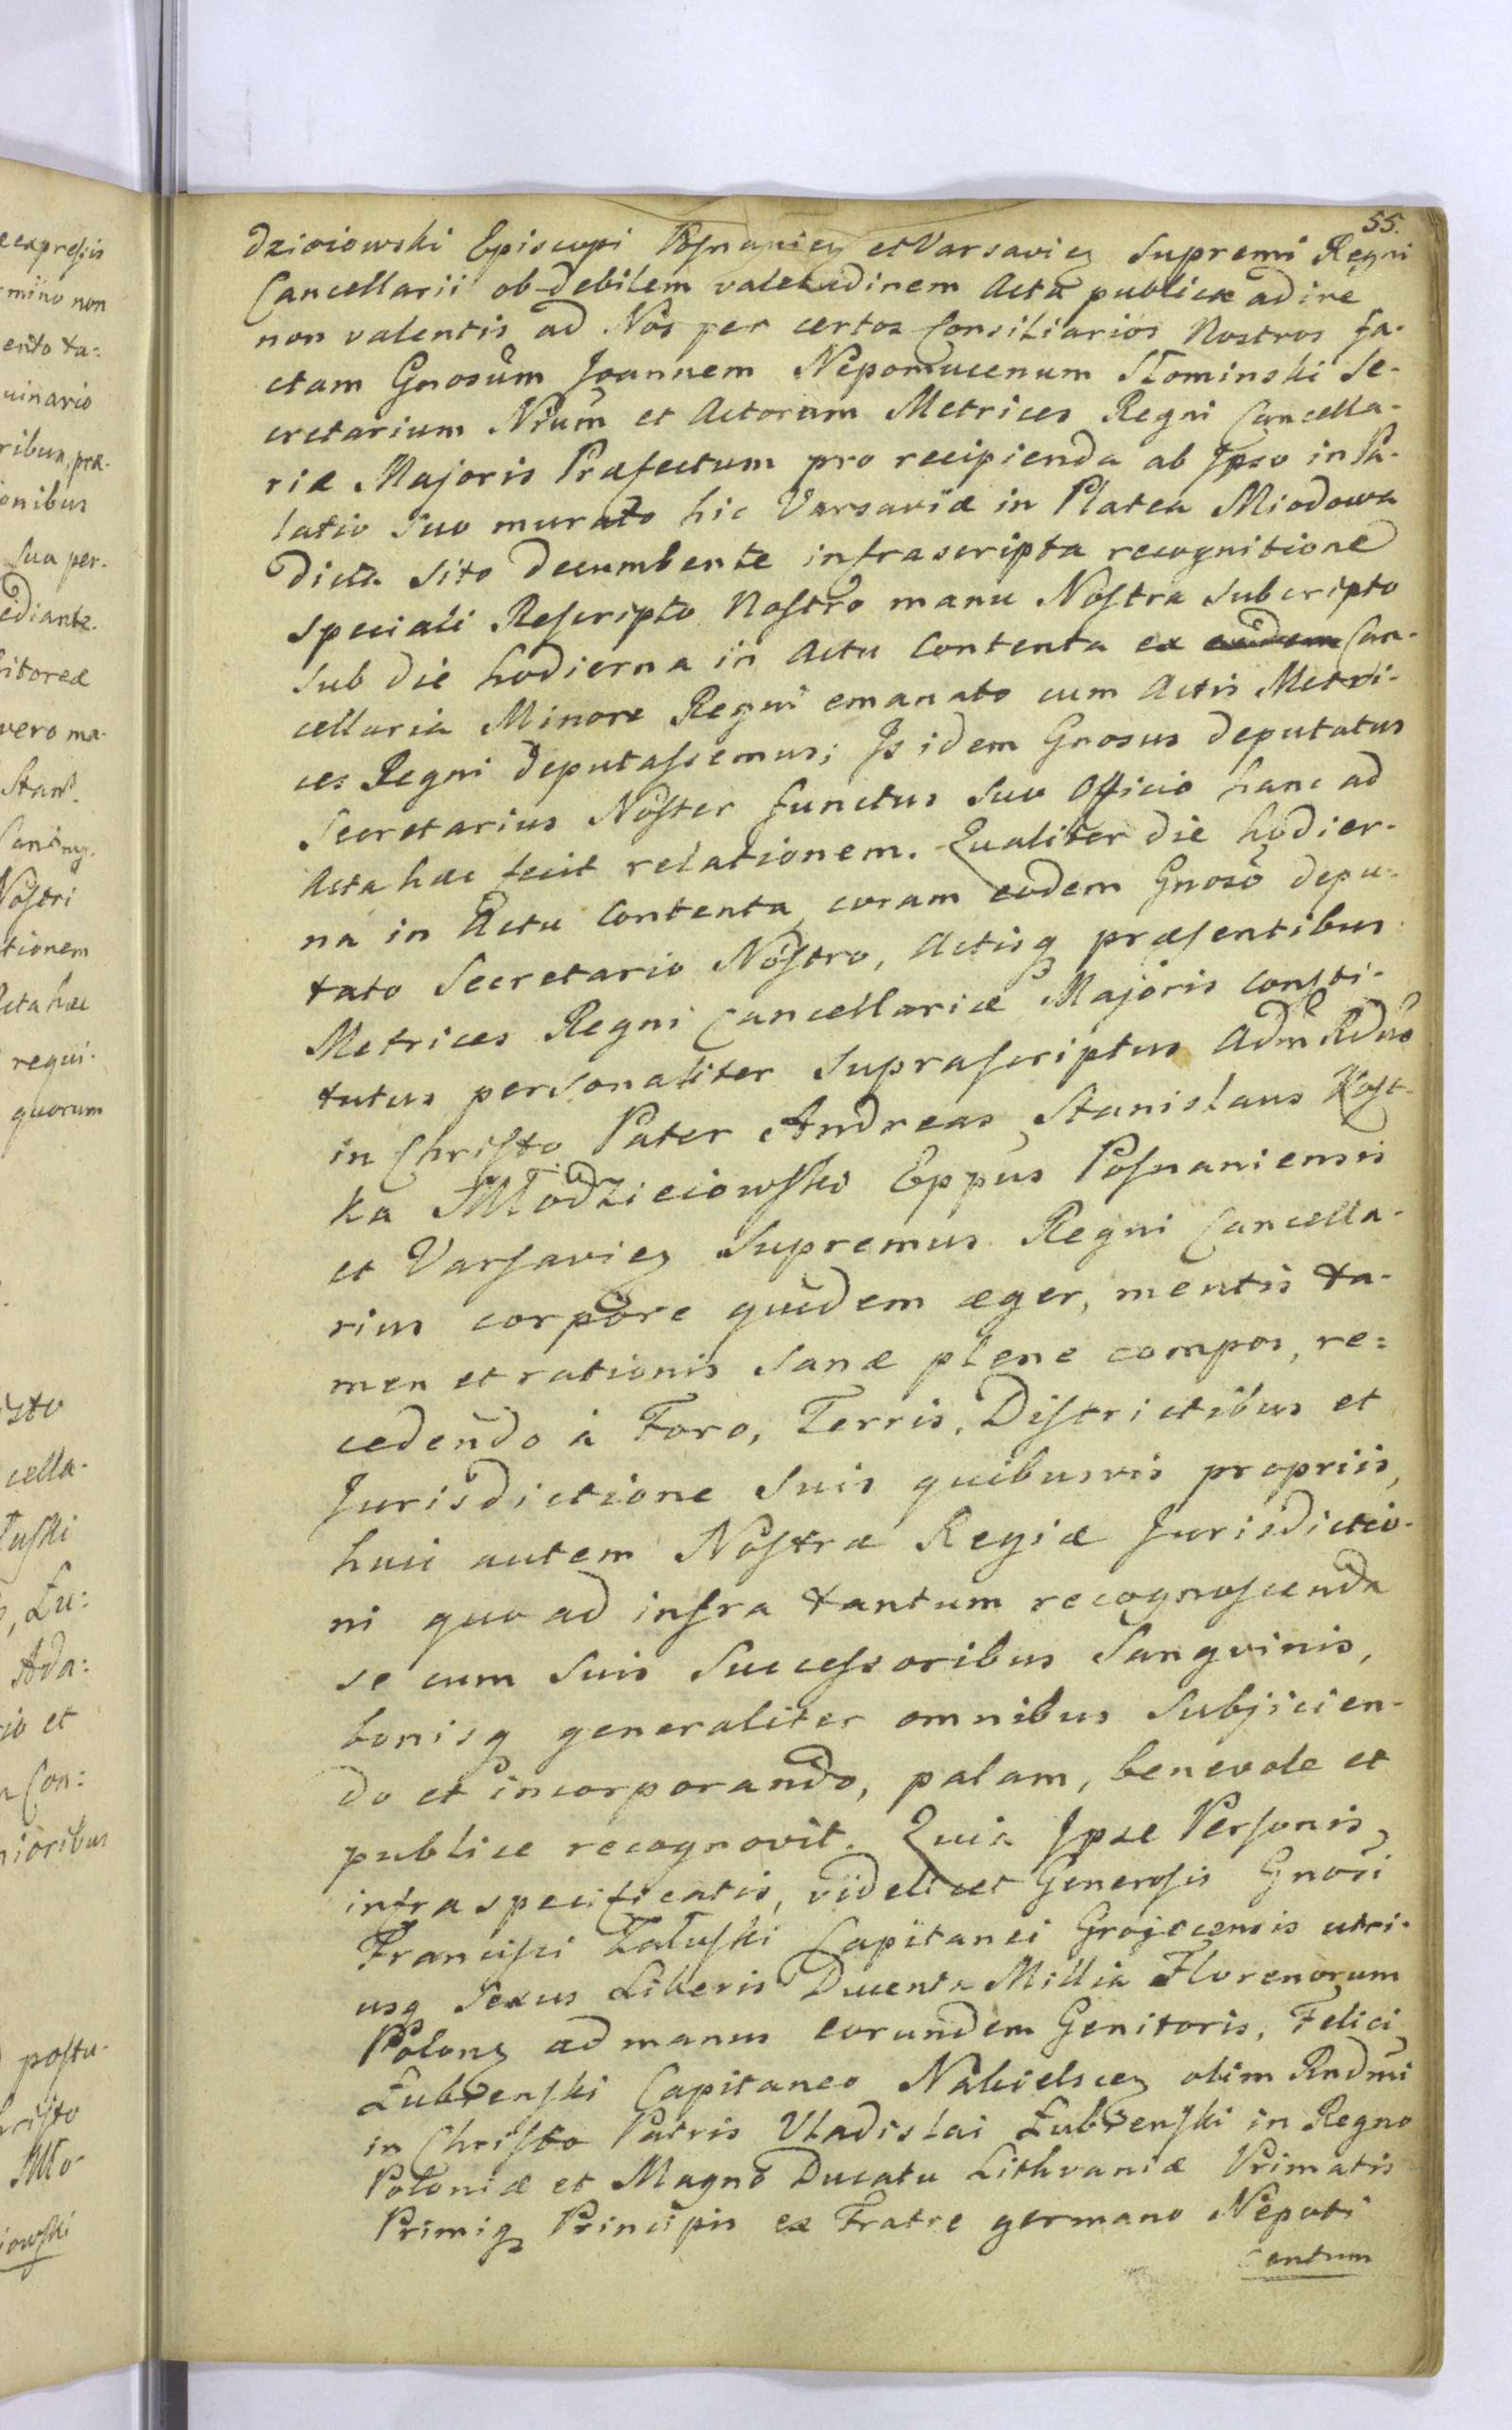 55.
dzieiowski Episcopi Posnanien et Varsavien Supremi Regni
Cancellarii ob debilem valetudinem Acta publica adire
non valentis ad Nos per certos Consiliarios Nostros fa-
ctam Gnosum Joannem Nepomucenum Słominski Se-
cretarium Nrum et Actorum Metrices Regni Cancella-
riæ Majoris Præfectum pro recipienda ab Ipso in Pa-
latio Suo murato hic Varsaviæ in Platea Miodowa
dicta sito decumbente infrascripta recognitione
speciali Rescripto Nostro manu Nostra subscripto
sub die hodierna in Actu Contenta ex Can-
cellaria Minore Regni emanato cum Actis Metri-
ces Regni deputassemus; Is idem Gnosus deputatus
Secretarius Noster functus suo Officio hanc ad
Acta hæc fecit relationem. Qualiter die hodier-
na in Actu Contenta coram eodem Gnoso depu-
tato Secretario Nostro, Actisq præsentibus
Metrices Regni Cancellariæ Majoris consti-
tutus personaliter suprascriptus Adm Rdus
in Christo Pater Andreas Stanislaus Kost-
ka Młodzieiowski Eppus Posnaniensis
et Varsavien Supremus Regni Cancella-
rius corpore quidem æger, mentis ta-
men et rationis sanæ plene compos, re=
cedendo à Foro, Terris, Districtibus et
Jurisdictione Suis quibusvis propriis,
huic autem Nostræ Regiæ Jurisdictio-
ni quo ad infra tantum recognoscenda
se cum suis Successoribus Sangvinis,
bonisq generaliter omnibus subjicien-
do et incorporando, palam, benevole et
publice recognovit. Quia Ipse Personis
infra specificatis, videlicet Generosis Gnosi
Francisci Załuski Capitanei Grojecensis utri-
usq Sexus Liberis Ducenta Millia Florenorum
Polon ad manus eorundem Genitoris, Felici
Łubienski Capitaneo Nakielscen olim Rndmi
in Christo Patris Vladislai Łubienski in Regno
Poloniæ et Magno Ducatu Lithvaniæ Primatis
Primiq Principis ex Fratre germano Nepoti
Centum